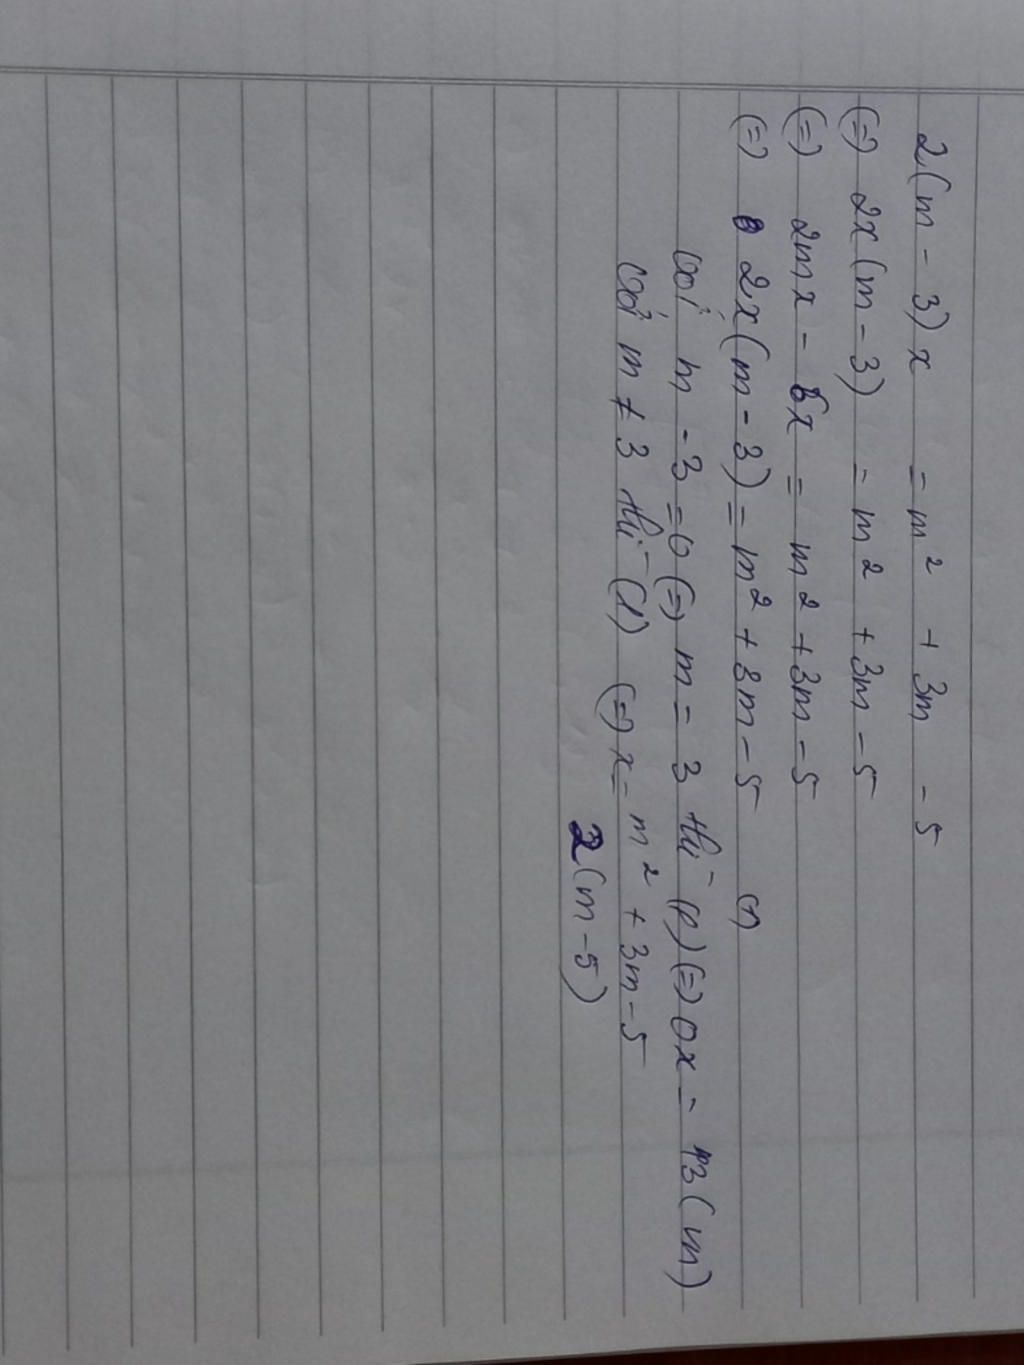 2(m - 3)x = m² + 3m - 5
(=) 2x(m - 3) = m² + 3m - 5
(=) 2mx - 6x = m² + 3m - 5
(=) 2x(m - 3) = m² + 3m - 5 (1)
với m - 3 = 0 (=) m = 3 thì (1) (=) 0x = 13 (vn)
với m ≠ 3 thì (1) (=) x = m² + 3m - 5
2(m - 5)